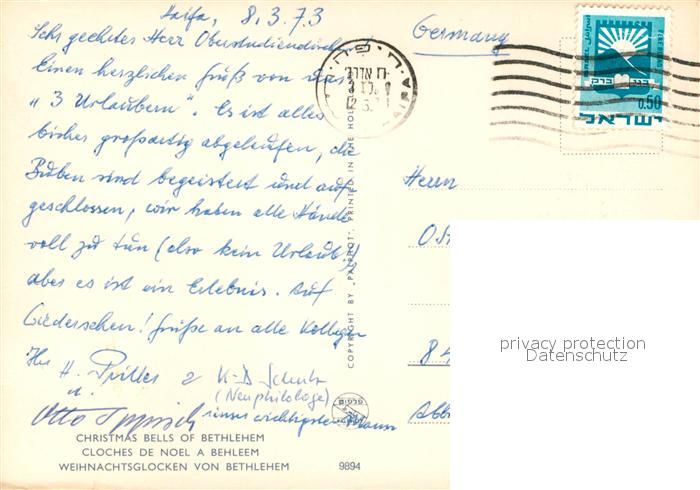 Haifa, 8.3.73
Sehr geehrter Herr Oberstudiendirektor!
Einen herzlichen Gruß von den
"3 Urlaubern". Es ist alles
bisher großartig abgelaufen, die
Buben sind begeistert und auf
geschlossen, wir haben alle Hände
voll zu tun (also kein Urlaub)
aber es ist ein Erlebnis. Auf
Wiedersehen! Grüße an alle Kollegen
Ihr H. K-D Schulz
(Neuphilologe)
u. Otto unser wichtigster Mann
CHRISTMAS BELLS OF BETHLEHEM
CLOCHES DE NOEL A BEHLEEM
WEIHNACHTSGLOCKEN VON BETHLEHEM
9894
COPYRIGHT BY „PALPHOT", PRINTED IN THE HOL
Germany
חיפה
HAIFA
בני ברק
0.50
ישראל
Herrn
OSt
84
privacy protection
Datenschutz